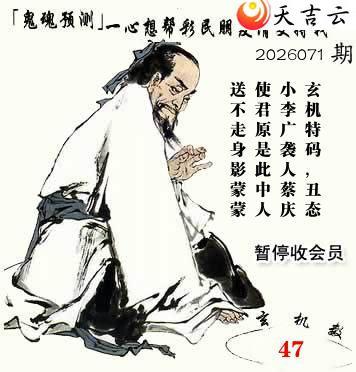 天吉云
「鬼魂预测」一心想帮彩民朋
2026071 期
玄机特码，丑态
小李广袭人蔡庆
使君原是此中人
送不走身影蒙蒙
暂停收会员
玄机数
47